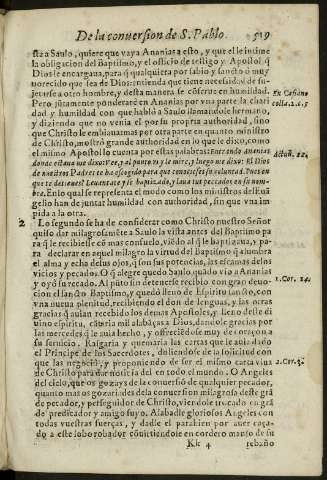 De la conuersion de S. Pablo. 519
sta a Saulo, quiere que vaya Ananias a esto, y que el le intime
la obligacion del Baptismo, y el officio de testigo y Apostol q̃
Dios le encargaua, para q̃ qualquiera por sabio y sancto ó muy
fauorecido que sea de Dios: entienda que tiene necessidad de su-
jetarse a otro hombre, y desta manera se cõserue en humildad.
Pero juntamente ponderaré en Ananias por vna parte la chari
dad y humildad con que habló a Saulo llamandole hermano,
y diziendo que no venia el por su propria authoridad, sino
que Christo le embiaua: mas por otra parte en quanto ministro
de Christo, mostró grande authoridad en lo que le dixo, como
el mismo Apostol lo cuenta por estas palabras:
donde estaua me dixo: Vee, y al punto vi y le miré, y luego me dixo: El Dios
de nuestros Padres te ha escogido para que conociesses su voluntad. Pues en
que te detienes? Leuantate y se baptizado, y laua tus peccados en su nom-
bre. En lo qual se representa el modo como los ministros del Euã
gelio han de juntar humildad con authoridad, sin que vna im
pida a la otra.
2 Lo segundo se ha de considerar como Christo nuestro Señor
quiso dar milagrosamẽte a Saulo la vista antes del Baptismo pa
ra q̃ le recibiesse cõ mas consuelo, viẽdo al q̃ le baptizaua, y pa-
ra declarar en aquel milagro la virtud del Baptismo q̃ alumbra
el alma y echa de sus ojos, q̃ son sus potencias, las escamas de los
vicios y pecados. O q̃ alegre quedo Saulo quãdo vio a Ananias
y oyó su recado. Al pũto sin detenerse recibio con gran deuo-
cion el sancto Baptismo, y quedó lleno de Espiritu sancto, con
vna nueua plenitud, recibiendo el don de lenguas, y las otras
gracias q̃ auian recebido los demas Apostoles, y lleno deste di
uino espiritu, cãtaria mil alabãças a Dios, dandole gracias por
las mercedes q̃ le auia hecho, y offreciẽdose muy de coraçon a
su seruicio. Rasgaria y quemaria las cartas que le auia dado
el Principe de los Sacerdotes, doliendose de la solicitud con
que las negoció, y proponiendo de ser el mismo carta viua
de Christo para dar noticia del en todo el mundo. O Angeles
del cielo, que os gozays de la conuersió de qualquier pecador,
quanto mas os gozariades de la conuersion milagrosa deste grã
de pecador, y perseguidor de Christo, viendole trocado en grã
de predicador y amigo suyo. Alabadle gloriosos Angeles con
todas vuestras fuerças, y dadle el parabien por auer caça-
do a este lobo robador cõuirtiendole en cordero manso de su
Kk 4 rebaño
Ex Casiano
colla. 2. c. 5
Actuũ. 22.
1. Cor. 14.
2. Cor. 3.